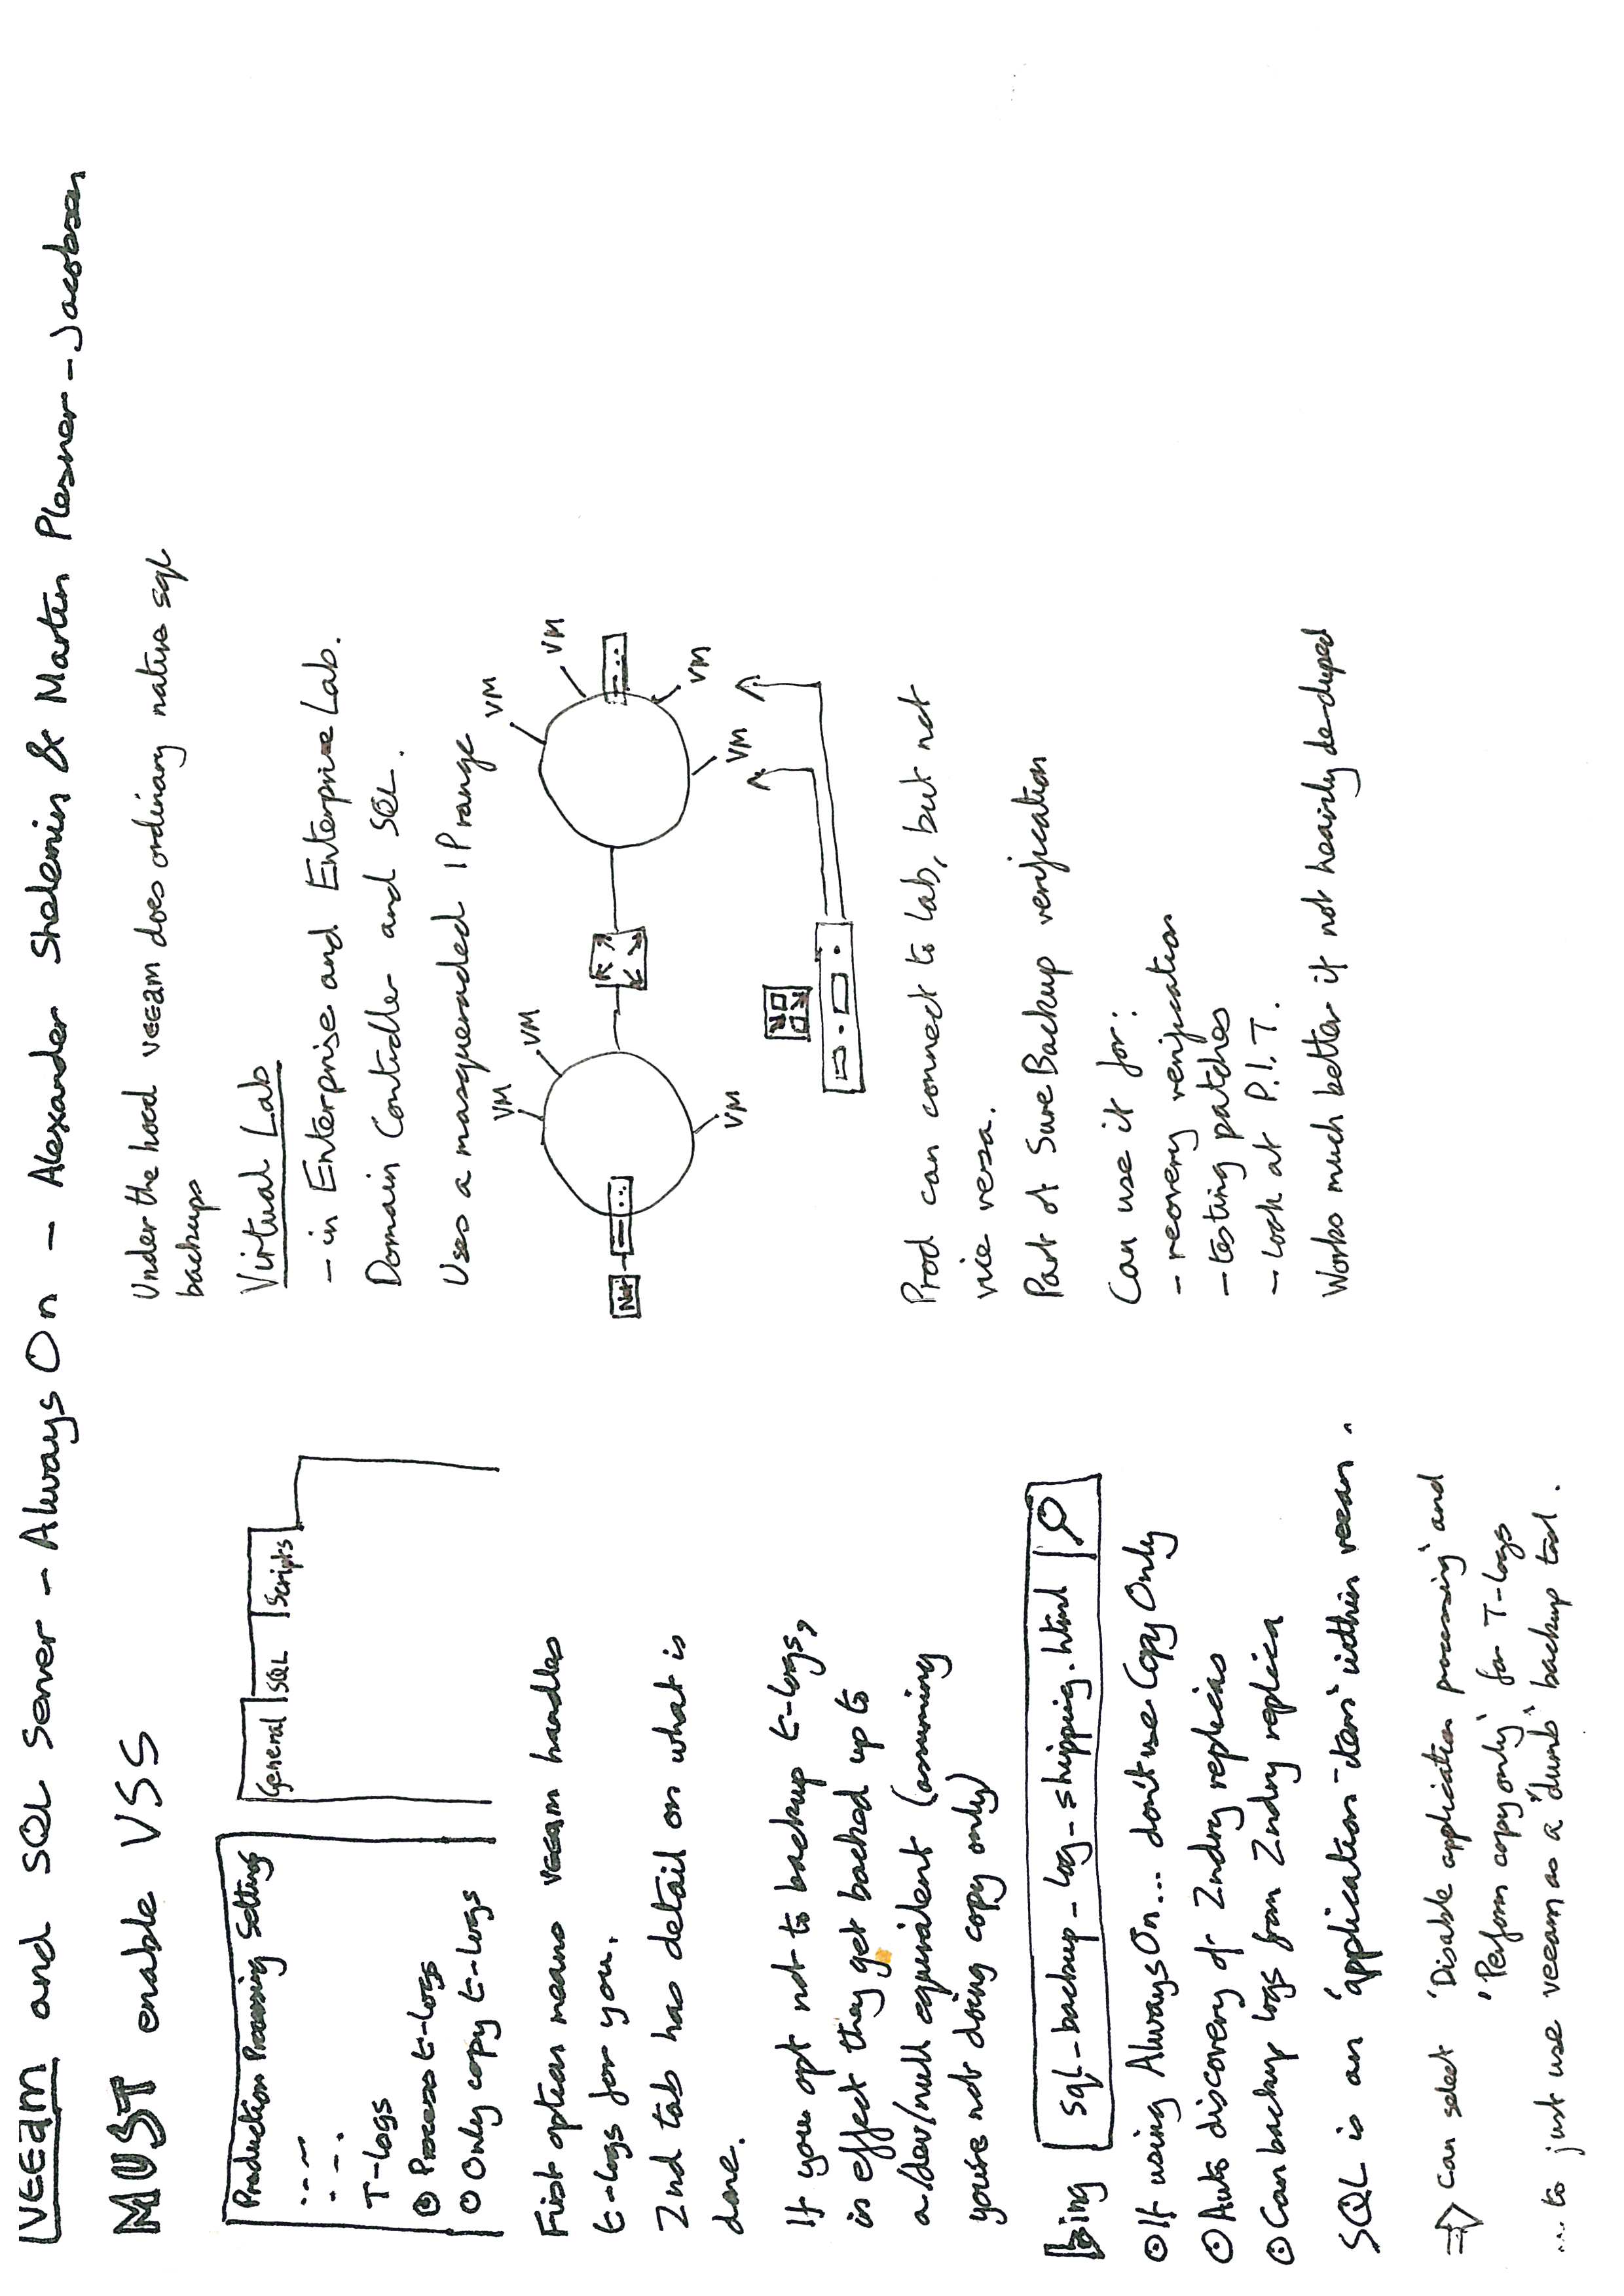 veeam and SQL Server - Always On - Alexander Shelemin & Martin Plesner-Jacobsen
MUST enable VSS
Production Processing Setting
T-logs
Process t-logs
Only copy t-logs
General SQL Scripts
First option means veeam handles
t-logs for you.
2nd tab has detail on what is
done.
If you opt not to backup t-logs,
in effect they get backed up to
a /dev/null equivalent (assuming
you're not doing copy only)
bing sql-backup-log-shipping.html
If using Always On... don't use Copy Only
Auto discovery of 2ndry replicas
Can backup logs from 2ndry replica
SQL is an 'application item' within veeam.
⇒ Can select 'Disable application processing' and
'Perform copy only' for T-logs
... to just use veeam as a 'dumb' backup tool.
Under the hood veeam does ordinary native sql
backups
Virtual Lab
- in Enterprise and Enterprise Lab.
Domain Controller and SQL.
Uses a masqueraded IP range
Net
VM
VM
VM
VM
VM
VM
VM
Prod can connect to lab, but not
vice versa.
Part of Sure Backup verification
Can use it for:
- recovery verification
- testing patches
- look at P.I.T.
Works much better if not heavily de-duped